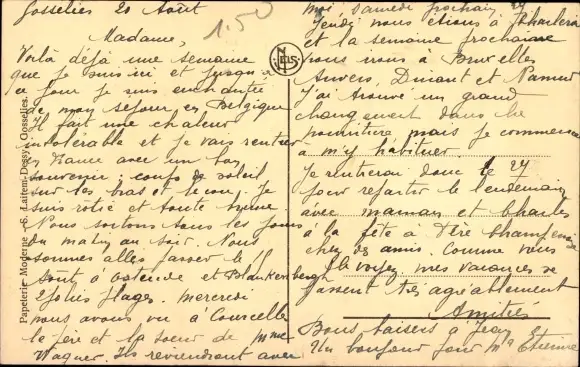 Gosselies 20 Août
1.50
Madame,
Voilà déjà une semaine
que je suis ici et jusqu'à
ce jour je suis enchantée
de mon séjour en Belgique
Il fait une chaleur
intolérable et je vais rentrer
en France avec un bon
souvenir : coups de soleil
sur les bras et le cou. Je
suis rôtie et toute brune
Nous sortons tous les jours
du matin au soir. Nous
sommes allés passer le
août à Ostende et Blankenberghe
2 jolies plages. Mercredi
nous avons vu à Courcelles
le père et la soeur de Mme
Wagner. Ils reviendront avec
moi samedi prochain 27
Jeudi nous étions à Charleroi
et la semaine prochaine
nous irons à Bruxelles
Anvers, Dinant et Namur
J'ai trouvé un grand
changement dans la
nourriture mais je commence
à m'y habituer.
Je rentrerai donc le 27
pour repartir le lendemain
avec maman et Charles
à la fête à
chez des amis. Comme vous
le voyez, mes vacances se
passent très agréablement
Amitiés
Bons baisers à Jean
Un bonjour pour Mr Etienne
NELS
Papeterie Moderne - S. Dessy, Gosselies.